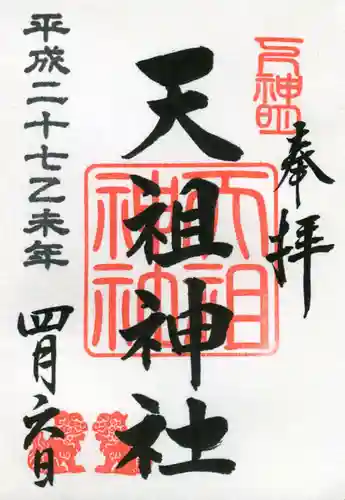 奉拝
天祖神社
天祖神社
平成二十七乙未年
四月六日